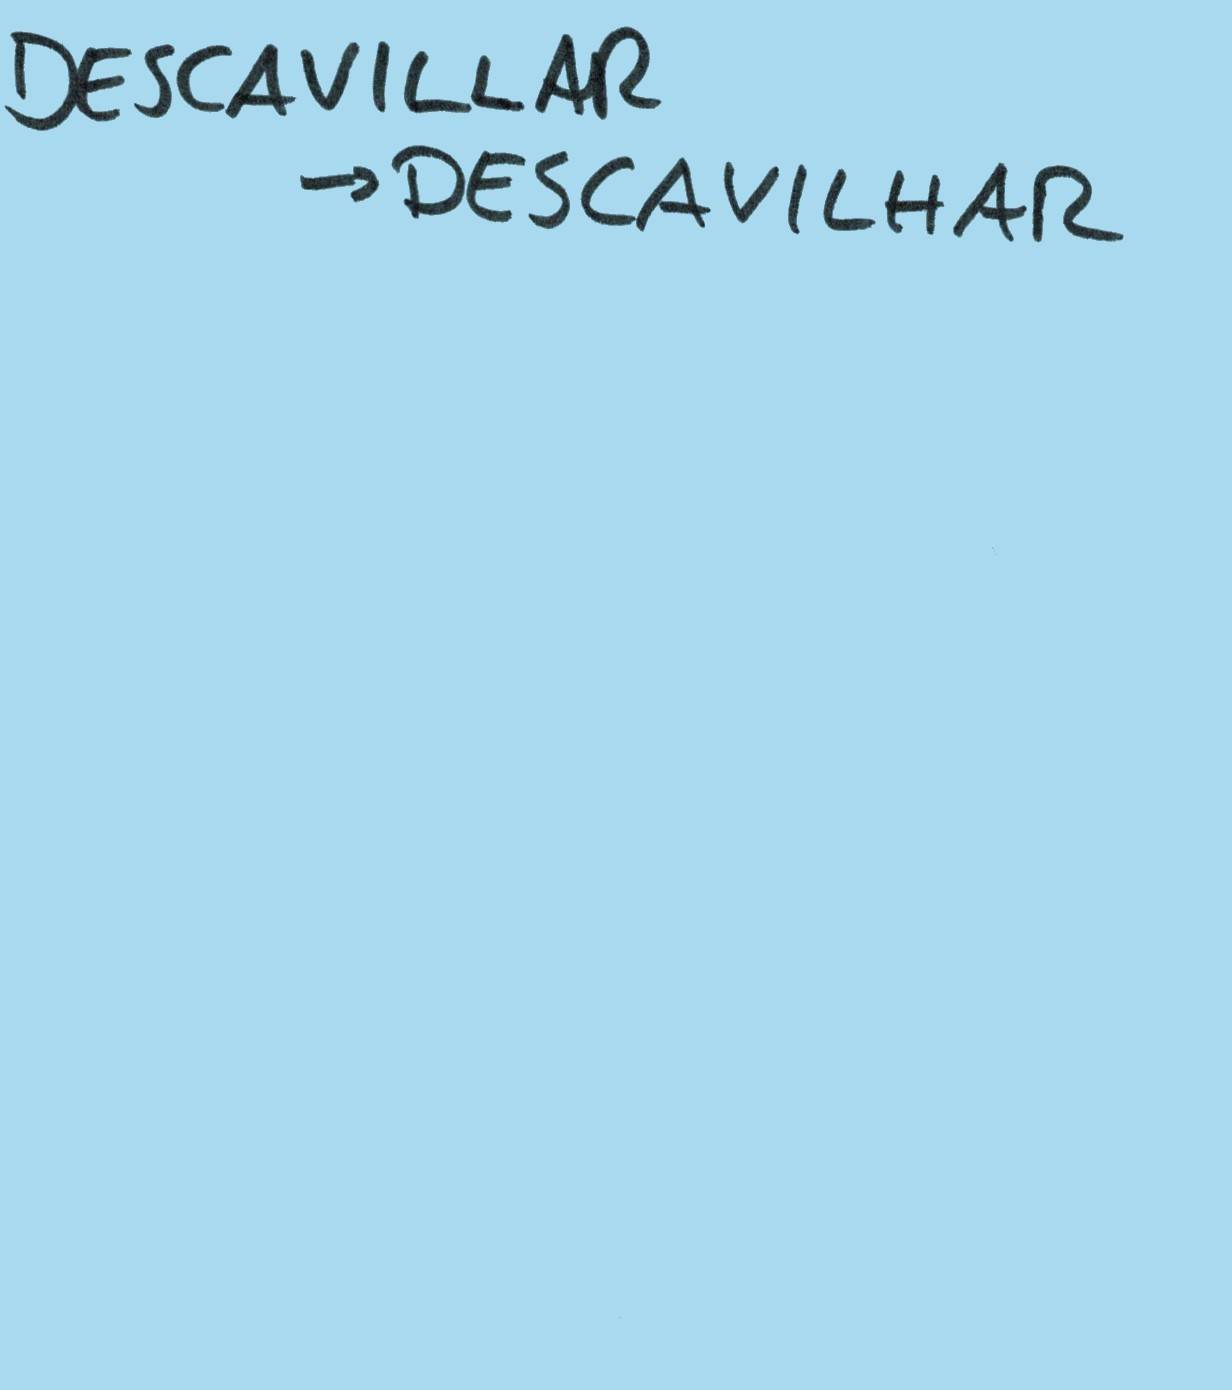 DESCAVILLAR
→ DESCAVILHAR